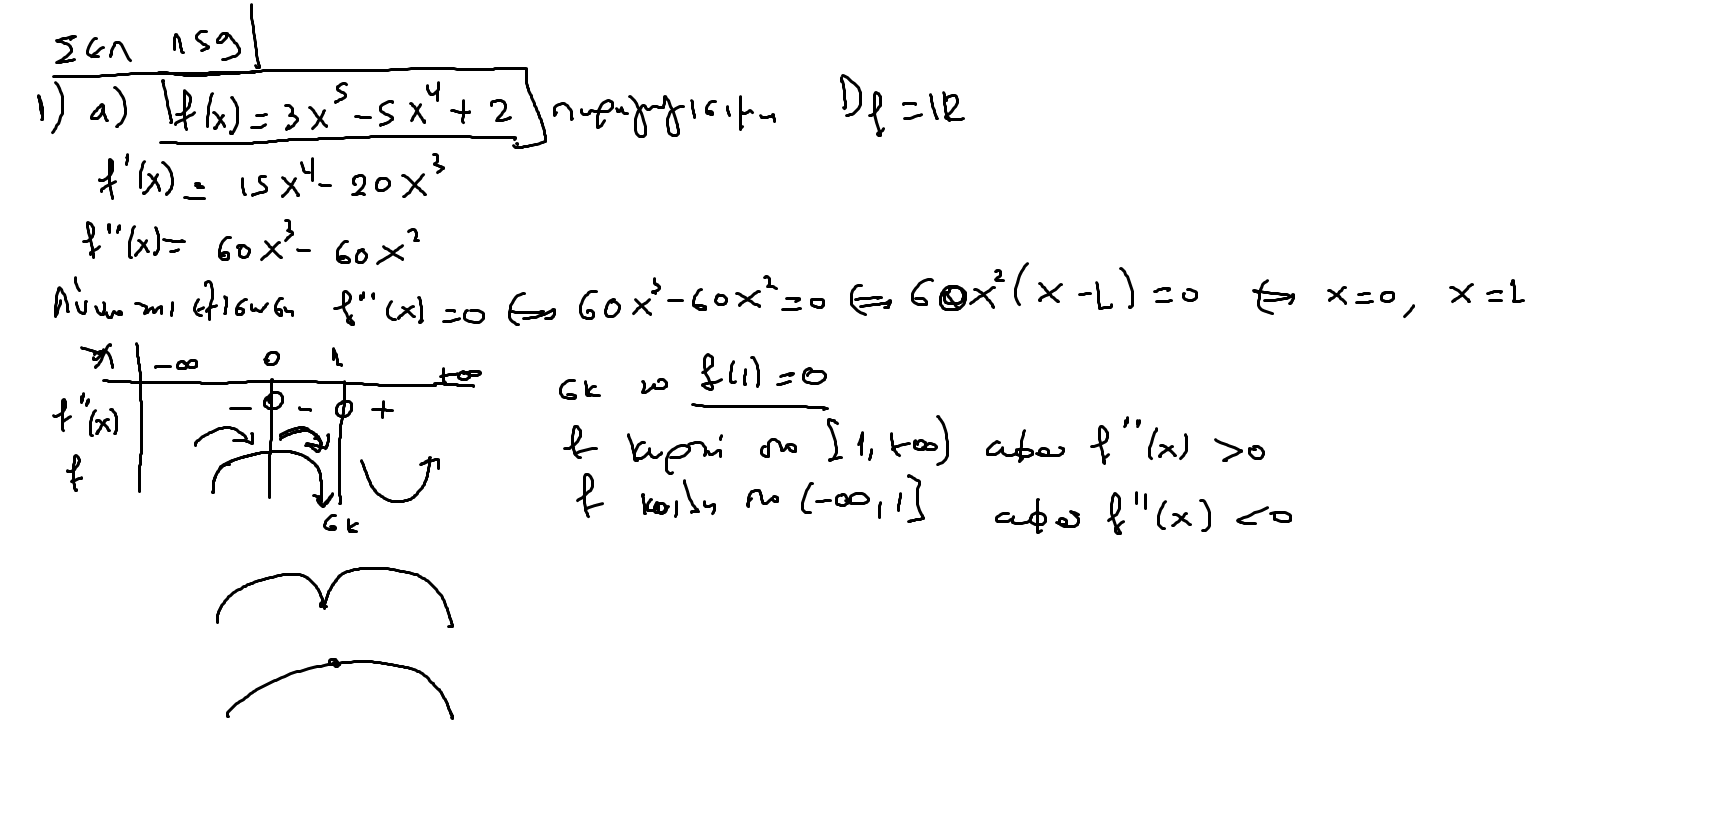 Σελ 159
1) α) f(x) = 3x⁵ - 5x⁴ + 2 παραγωγίσιμη D_f = ℝ
f'(x) = 15x⁴ - 20x³
f''(x) = 60x³ - 60x²
Λύνω την εξίσωση f''(x) = 0 ⟺ 60x³ - 60x² = 0 ⟺ 60x²(x - 1) = 0 ⟺ x = 0, x = 1
x -∞ 0 1 +∞
f''(x) - 0 - 0 +
f
σκ το f(1) = 0
f κυρτή στο [1, +∞) αφου f''(x) > 0
f κοίλη στο (-∞, 1] αφου f''(x) < 0
σκ